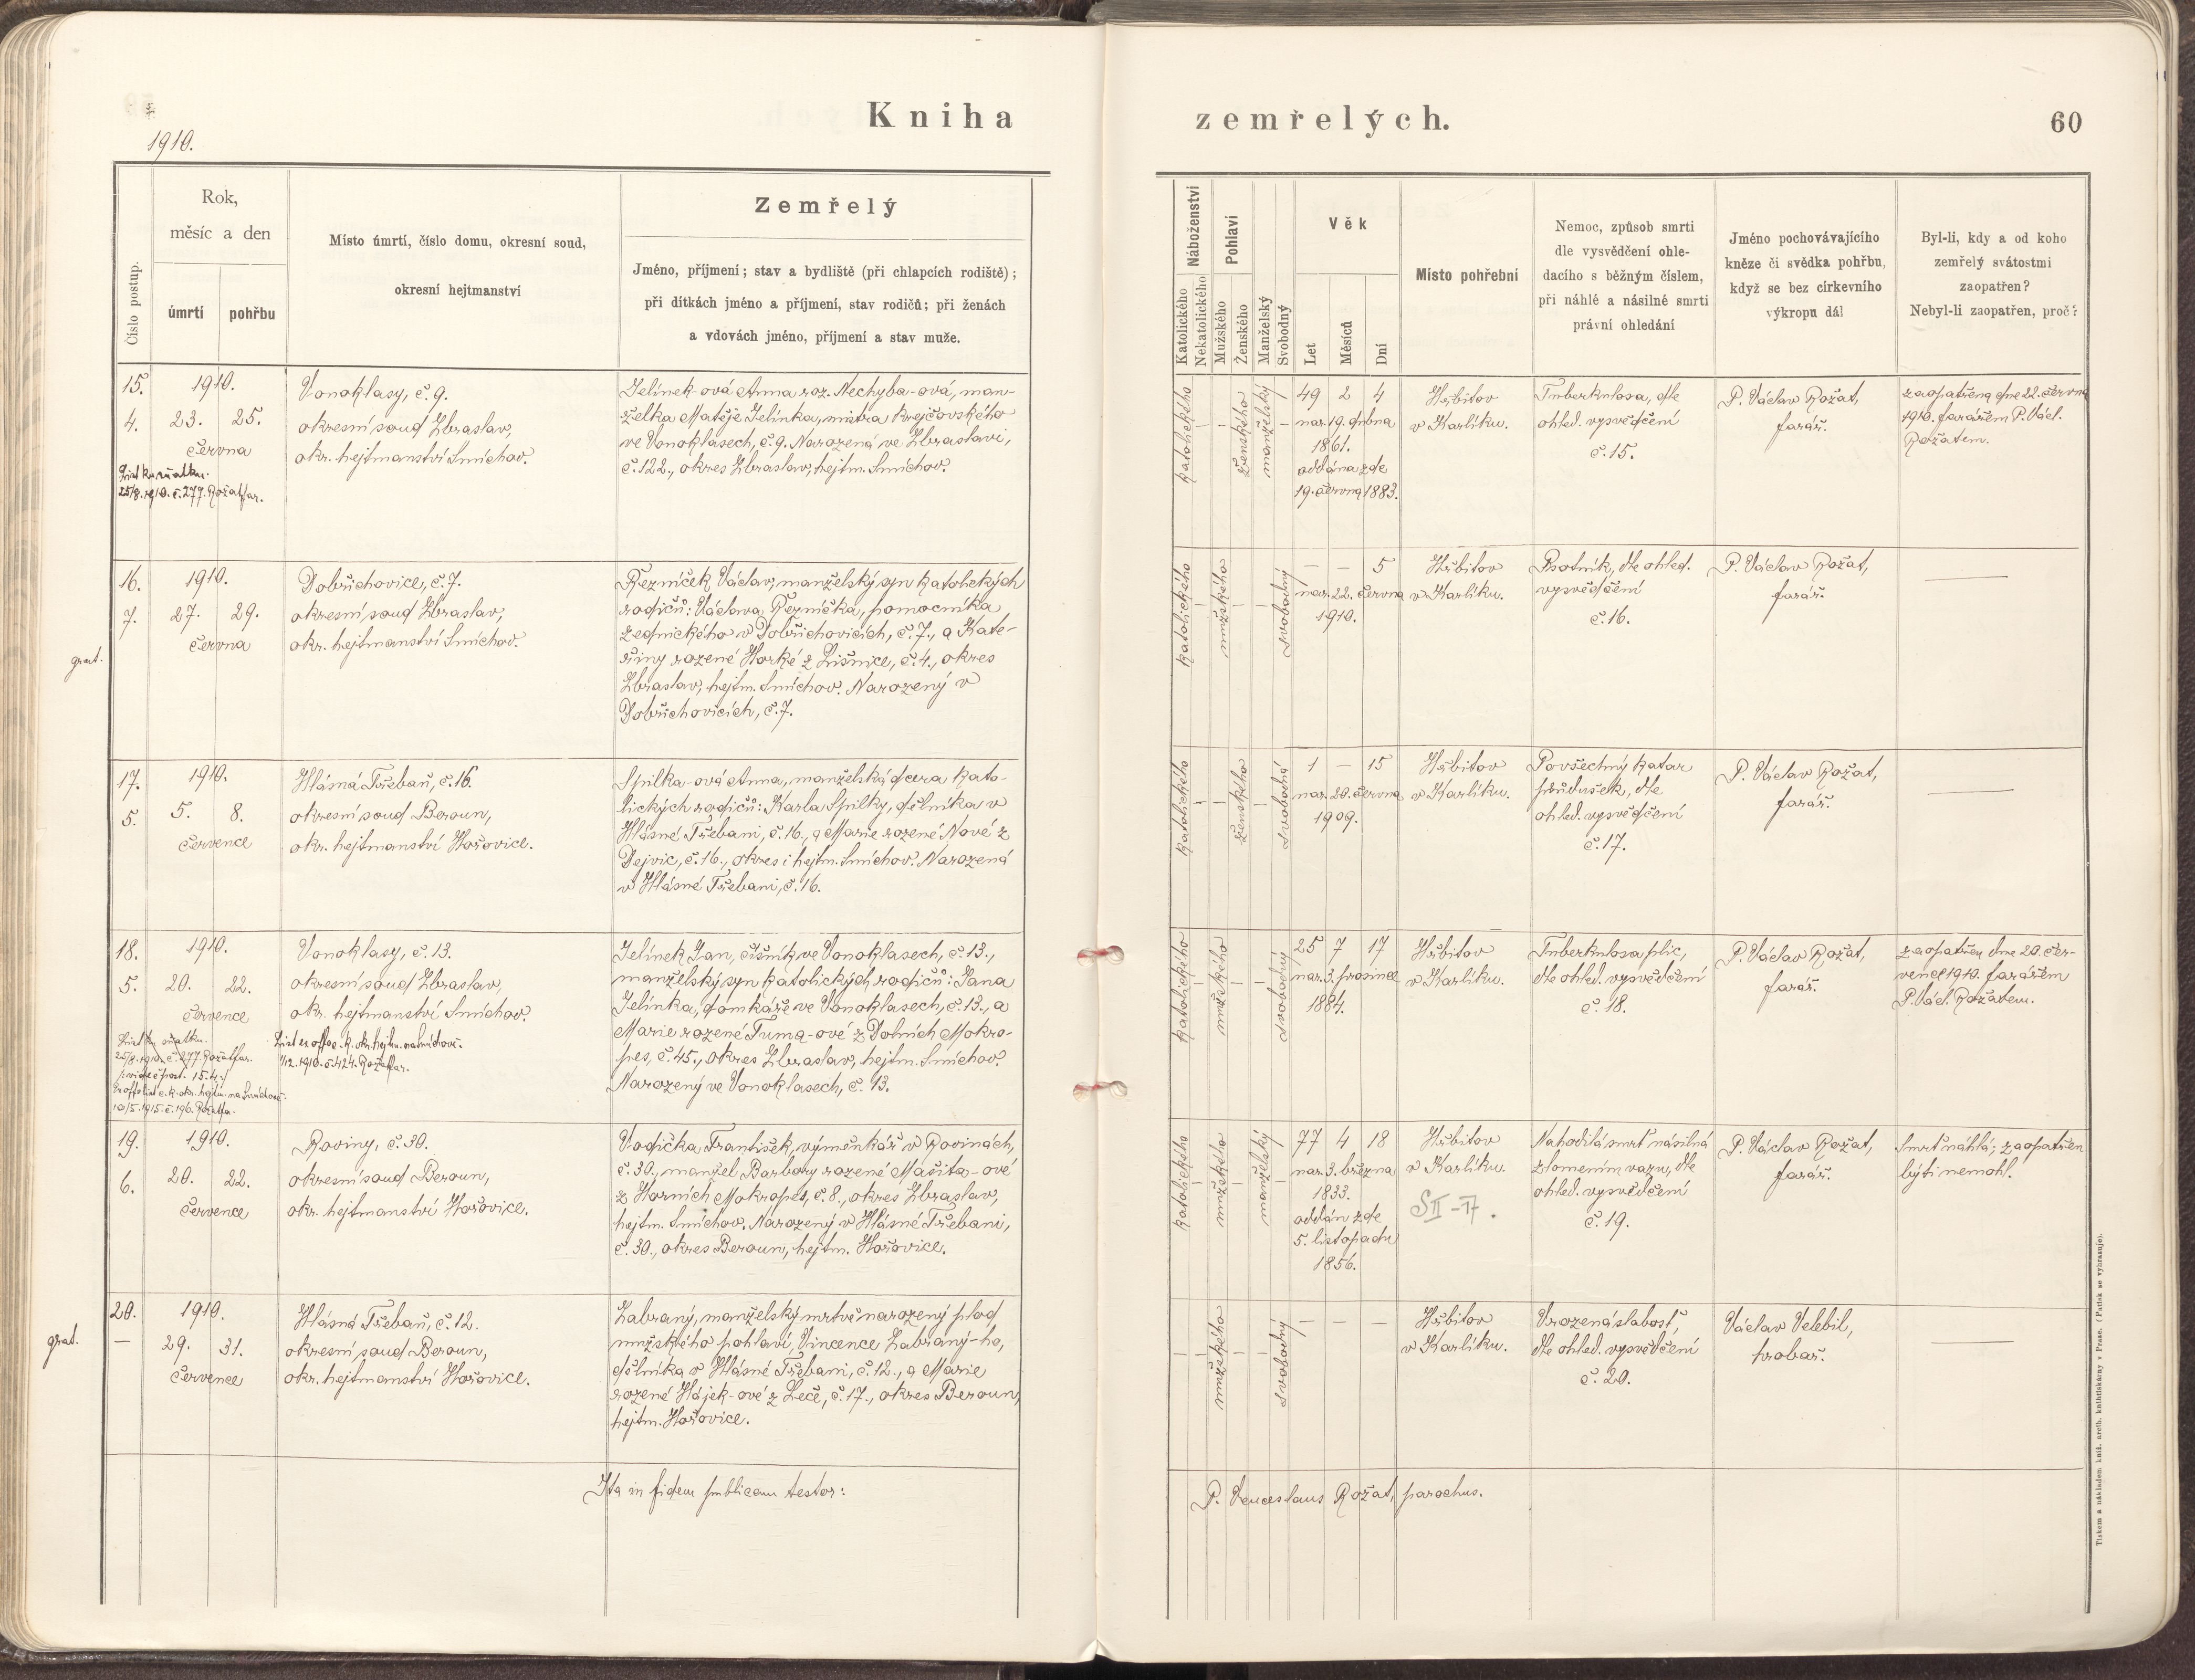 Kniha
zemřelých.
60
1910.
Číslo postup.
Rok,
měsíc a den
úmrtí
pohřbu
Místo úmrtí, číslo domu, okresní soud,
okresní hejtmanství
Zemřelý
Jméno, příjmení; stav a bydliště (při chlapcích rodiště);
při dítkách jméno a příjmení, stav rodičů; při ženách
a vdovách jméno, příjmení a stav muže.
Náboženství
Katolického
Nekatolického
Pohlaví
Mužského
Ženského
Manželský
Svobodný
Věk
Let
Měsíců
Dní
Místo pohřební
Nemoc, způsob smrti
dle vysvědčení ohle-
dacího s běžným číslem,
při náhlé a násilné smrti
právní ohledání
Jméno pochovávajícího
kněze či svědka pohřbu,
když se bez církevního
výkropu dál
Byl-li, kdy a od koho
zemřelý svátostmi
zaopatřen?
Nebyl-li zaopatřen, proč?
15.
4.
1910.
23. 25.
června
25/8. 1910. č. 277. Rožat far.
Vonoklasy, č. 9.
okresní soud Zbraslav,
okr. hejtmanství Smíchov.
Jelínek-ová Anna roz. Nechyba-ová, man-
želka Matěje Jelínka, mistra krejčovského
ve Vonoklasech, č. 9. Narozená ve Zbraslavi,
č. 122., okres Zbraslav, hejtm. Smíchov.
katolického
ženského
manželský
49 2 4
nar. 19. dubna
1861.
oddána zde
19. června 1883.
Hřbitov
v Karlíku.
Tuberkulosa, dle
ohled. vysvědčení
č. 15.
P. Václav Rožat,
farář.
zaopatřena dne 22. června
1910. farářem P. Václ.
Rožatem.
grat.
16.
7.
1910.
27. 29.
června
Dobřichovice, č. 7.
okresní soud Zbraslav,
okr. hejtmanství Smíchov.
Řezníček Václav, manželský syn katolických
rodičů: Václava Řezníčka, pomocníka
zednického v Dobřichovicích, č. 7., a Kate-
řiny rozené Horké z Líšnice, č. 4., okres
Zbraslav, hejtm. Smíchov. Narozený v
Dobřichovicích, č. 7.
katolického
mužského
svobodný
— — 5
nar. 22. června
1910.
Hřbitov
v Karlíku.
Psotník, dle ohled.
vysvědčení
č. 16.
P. Václav Rožat,
farář.
—
17.
5.
1910.
5. 8.
července
Hlásná Třebaň, č. 16.
okresní soud Beroun,
okr. hejtmanství Hořovice.
Spilka-ová Anna, manželská dcera kato-
lických rodičů: Karla Spilky, dělníka v
Hlásné Třebani, č. 16., a Marie rozené Nové z
Dejvic, č. 16., okres i hejtm. Smíchov. Narozená
v Hlásné Třebani, č. 16.
katolického
ženského
svobodná
1 — 15
nar. 20. června
1909.
Hřbitov
v Karlíku.
Povšechný katar
průdušek, dle
ohled. vysvědčení
č. 17.
P. Václav Rožat,
farář.
—
18.
5.
1910.
20. 22.
července
25/8. 1910. č. 277. Rožat far.
10/5. 1915. č. 196. Rožat far.
Vonoklasy, č. 13.
okresní soud Zbraslav,
okr. hejtmanství Smíchov.
1/12. 1910. č. 424. Rožat far.
Jelínek Jan, číšník ve Vonoklasech, č. 13.,
manželský syn katolických rodičů: Jana
Jelínka, domkáře ve Vonoklasech, č. 13., a
Marie rozené Tuma-ové z Dolních Mokro-
pes, č. 45., okres Zbraslav, hejtm. Smíchov.
Narozený ve Vonoklasech, č. 13.
katolického
mužského
svobodný
25 7 17
nar. 3. prosince
1884.
Hřbitov
v Karlíku.
Tuberkulosa plic,
dle ohled. vysvědčení
č. 18.
P. Václav Rožat,
farář.
zaopatřen dne 20. čer-
vence 1910. farářem
P. Václ. Rožatem.
19.
6.
1910.
20. 22.
července
Roviny, č. 30.
okresní soud Beroun,
okr. hejtmanství Hořovice.
Vodička František, výměnkář v Rovinách,
č. 30., manžel Barbory rozené Mašita-ové
z Horních Mokropes, č. 8., okres Zbraslav,
hejtm. Smíchov. Narozený v Hlásné Třebani,
č. 30., okres Beroun, hejtm. Hořovice.
katolického
mužského
manželský
77 4 18
nar. 3. března
1833.
oddán zde
5. listopadu
1856.
Hřbitov
v Karlíku.
Nahodilá smrť násilná
zlomením vazu, dle
ohled. vysvědčení
č. 19.
P. Václav Rožat,
farář.
Smrť náhlá; zaopatřen
býti nemohl.
grat.
20.
—
1910.
29. 31.
července
Hlásná Třebaň, č. 12.
okresní soud Beroun,
okr. hejtmanství Hořovice.
Zabraný, manželský mrtvě narozený plod
mužského pohlaví, Vincence Zabraný-ho,
dělníka v Hlásné Třebani, č. 12., a Marie
rozené Hájek-ové z Leče, č. 17., okres Beroun,
hejtm. Hořovice.
mužského
svobodný
— — —
Hřbitov
v Karlíku.
Vrozená slabosť,
dle ohled. vysvědčení
č. 20.
Václav Velebil,
hrobař.
—
Ita in fidem publicam testor:
P. Venceslaus Rožat, parochus.
Tiskem a nákladem kníž. arcib. knihtiskárny v Praze. (Patisk se vyhrazuje).